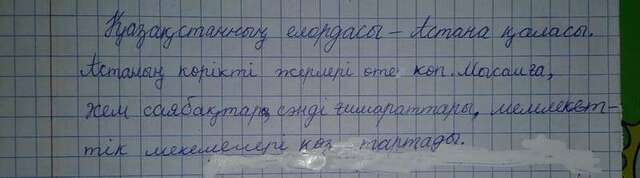 Қазақстанның елордасы – Астана қаласы.
Астаның көрікті жерлері өте көп. Мысалға,
көм саябақтар, сәнді ғимараттары, мемлекет-
тік мекемелері көз тартады.